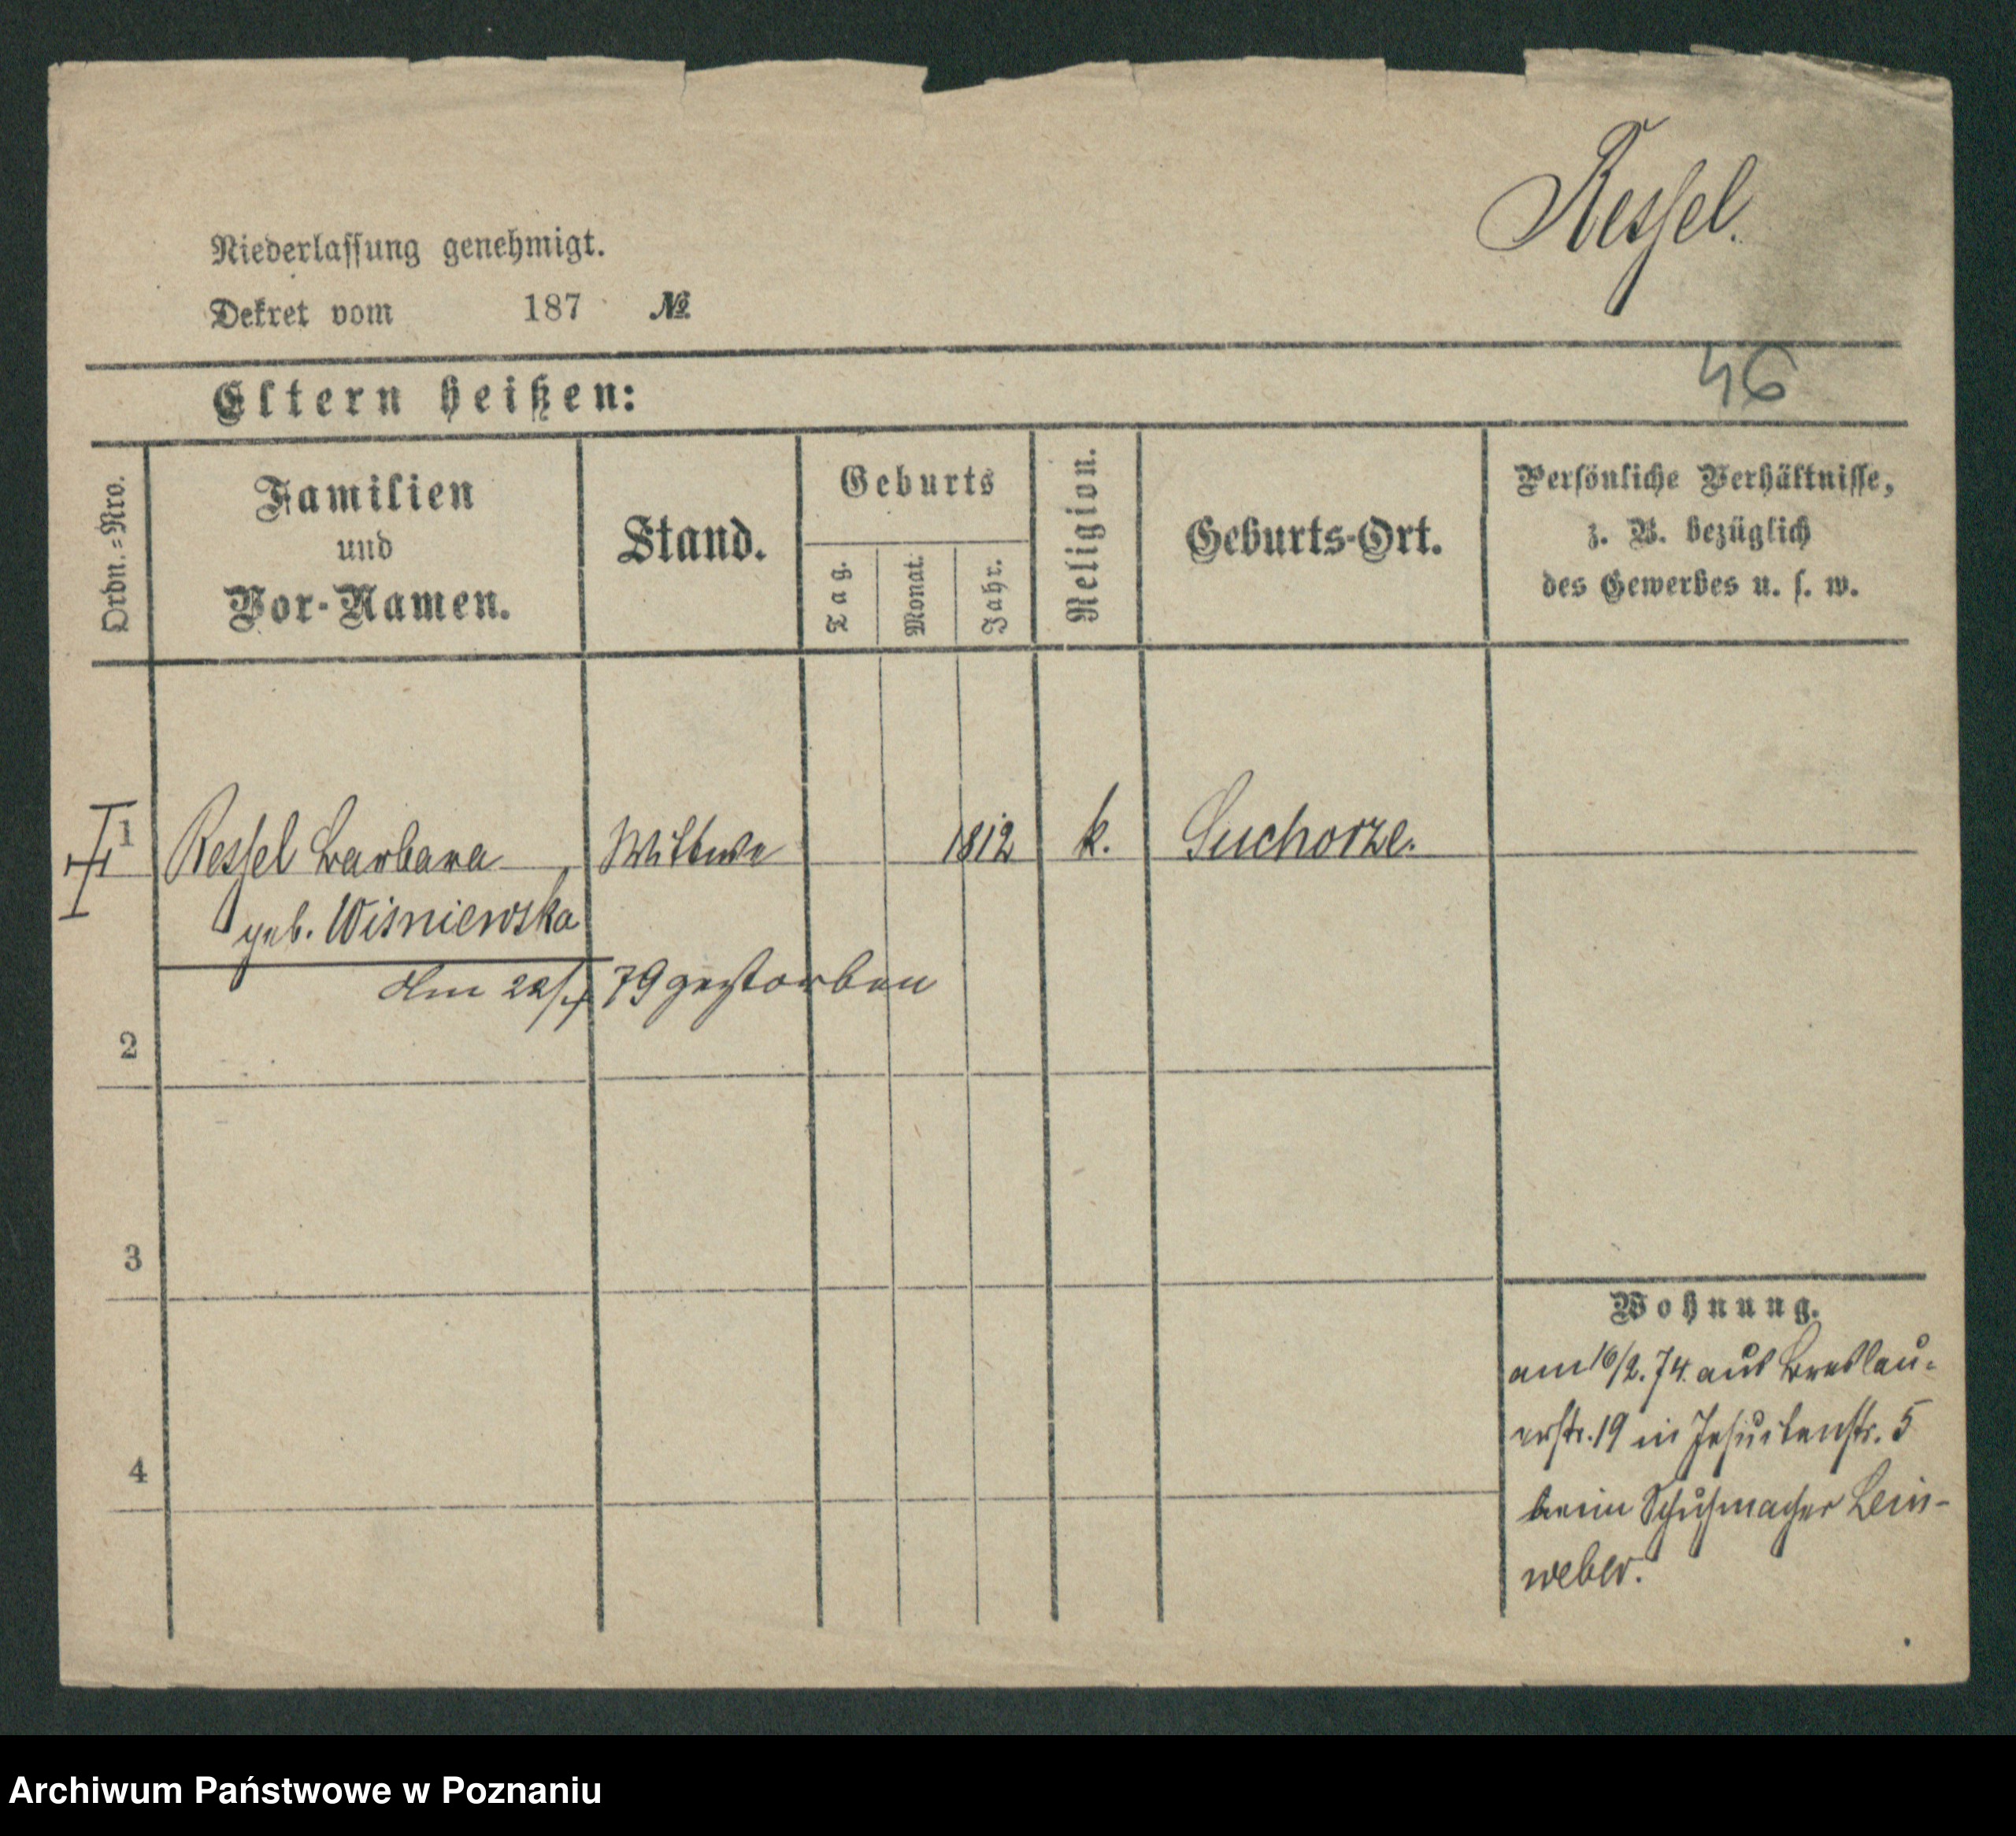 Ressel.
Niederlassung genehmigt.
Dekret vom 187 №
46
Eltern heißen:
Ordn.=Nro.
Familien
und
Vor-Namen.
Stand.
Geburts
Tag.
Monat.
Jahr.
Religion.
Geburts-Ort.
Persönliche Verhältnisse,
z. B. bezüglich
des Gewerbes u. s. w.
1 Ressel Barbara Wittwe 1812 k. Suchorze.
geb. Wisniewska
79 gestorben
2
3
4
Wohnung.
am 16/2. 74. aus Breslau-
erstr. 19 in Jesuitenstr. 5
beim Schuhmacher Lein-
weber.
Archiwum Państwowe w Poznaniu